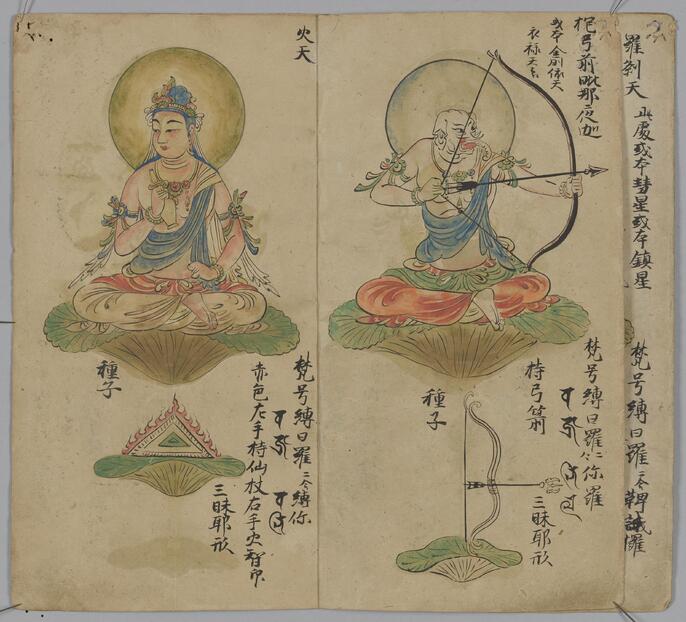 羅刹天 此處或本彗星或本鎮星
梵号縛日羅二合
持弓箭毗那夜迦
或本金剛依天
衣祿天
梵号縛日羅
持弓箭
種子
三昧耶形
火天
梵号縛日羅二合縛你
種子
赤色左手持仙杖右手火智印
三昧耶形